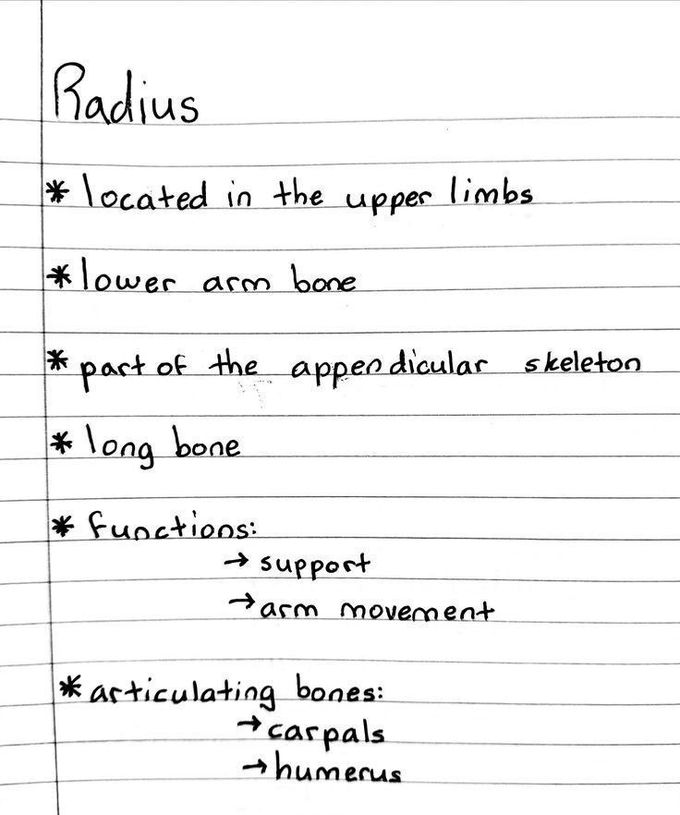 Radius
* located in the upper limbs
* lower arm bone
* part of the appendicular skeleton
* long bone
* functions:
→ support
→ arm movement
* articulating bones:
→ carpals
→ humerus